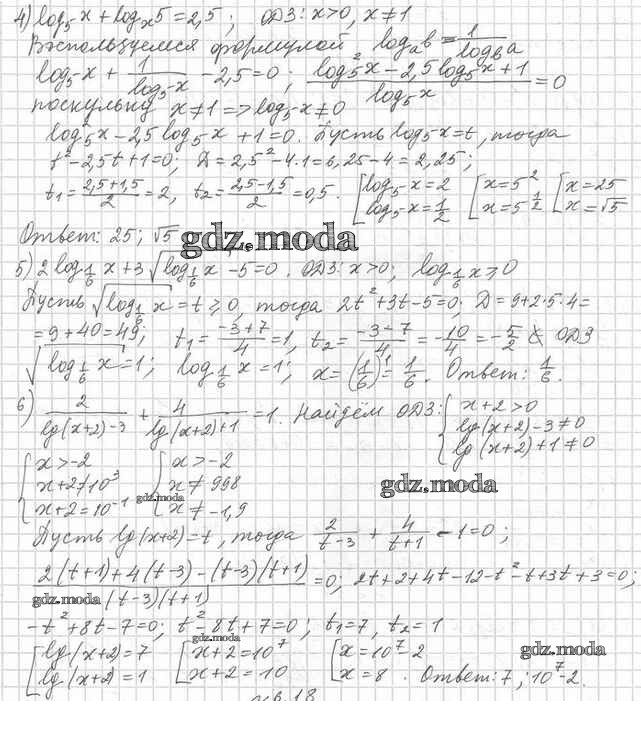 4) log₅x + logₓ5 = 2,5 ; ОДЗ: x>0, x≠1
Воспользуемся формулой logₐb = 1/log_b a
log₅x + 1/log₅x - 2,5 = 0 ; (log₅²x - 2,5 log₅x + 1)/log₅x = 0
поскульку x≠1 => log₅x≠0
log₅²x - 2,5 log₅x + 1 = 0. Пусть log₅x = t, тогда
t² - 2,5t + 1 = 0; D = 2,5² - 4·1 = 6,25 - 4 = 2,25;
t₁ = (2,5+1,5)/2 = 2, t₂ = (2,5-1,5)/2 = 0,5. [log₅x = 2 [x = 5² [x = 25
log₅x = 1/2 x = 5^(1/2) x = √5
Ответ: 25; √5
gdz.moda
5) 2 log_(1/6) x + 3 √(log_(1/6) x) - 5 = 0. ОДЗ: x>0; log_(1/6) x ≥ 0
Пусть √(log_(1/6) x) = t ≥ 0, тогда 2t² + 3t - 5 = 0; D = 9 + 2·5·4 =
= 9 + 40 = 49; t₁ = (-3+7)/4 = 1, t₂ = (-3-7)/4 = -10/4 = -5/2 ∉ ОДЗ
√(log_(1/6) x) = 1; log_(1/6) x = 1; x = (1/6)¹ = 1/6. Ответ: 1/6.
6) 2/(lg(x+2)-3) + 4/(lg(x+2)+1) = 1. Найдём ОДЗ: {x+2>0
lg(x+2)-3≠0
lg(x+2)+1≠0
{x>-2 {x>-2
x+2≠10³ x≠998
x+2=10⁻¹ x≠-1,9
gdz.moda
gdz.moda
Пусть lg(x+2) = t, тогда 2/(t-3) + 4/(t+1) - 1 = 0;
(2(t+1) + 4(t-3) - (t-3)(t+1))/((t-3)(t+1)) = 0; 2t+2+4t-12-t²-t+3t+3=0;
gdz.moda
-t² + 8t - 7 = 0; t² - 8t + 7 = 0; t₁ = 7, t₂ = 1
gdz.moda
[lg(x+2) = 7 [x+2 = 10⁷ [x = 10⁷-2
lg(x+2) = 1 x+2 = 10 x = 8. Ответ: 7; 10⁷-2.
gdz.moda